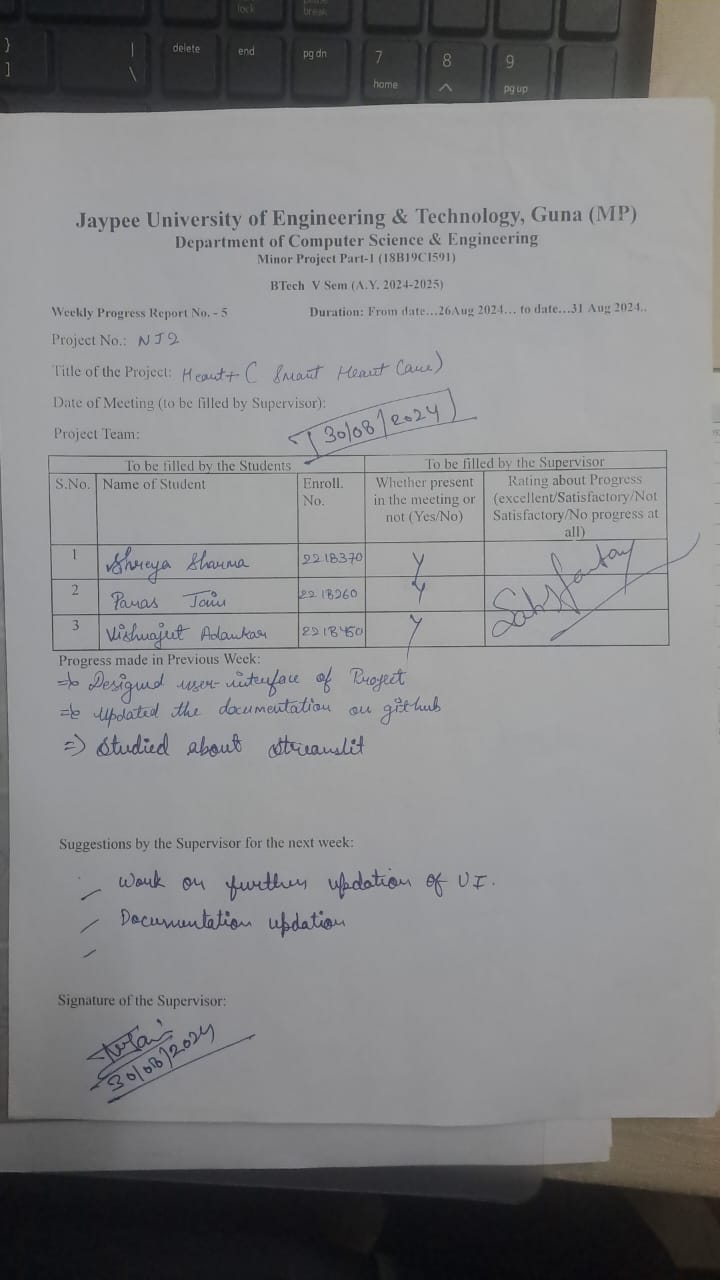 lock
break
}
]
|
\
delete
end
pg dn
7
home
8
9
pg up
Jaypee University of Engineering & Technology, Guna (MP)
Department of Computer Science & Engineering
Minor Project Part-1 (18B19CI591)
BTech V Sem (A.Y. 2024-2025)
Weekly Progress Report No. - 5 Duration: From date...26Aug 2024... to date...31 Aug 2024..
Project No.: NJ2
Title of the Project: Heart+ ( Smart Heart Care)
Date of Meeting (to be filled by Supervisor):
30/08/2024
Project Team:
To be filled by the Students To be filled by the Supervisor
S.No. Name of Student Enroll. No. Whether present in the meeting or not (Yes/No) Rating about Progress (excellent/Satisfactory/Not Satisfactory/No progress at all)
1 Shreya Sharma 221B370 Y
2 Paras Jain 221B260 Y
3 Vishwajeet Adankar 221B450 Y
Satisfactory
Progress made in Previous Week:
=> Designed user-interface of Project
=> Updated the documentation on github
=> Studied about streamlit
Suggestions by the Supervisor for the next week:
Work on further updation of UI.
Documentation updation
Signature of the Supervisor:
30/08/2024